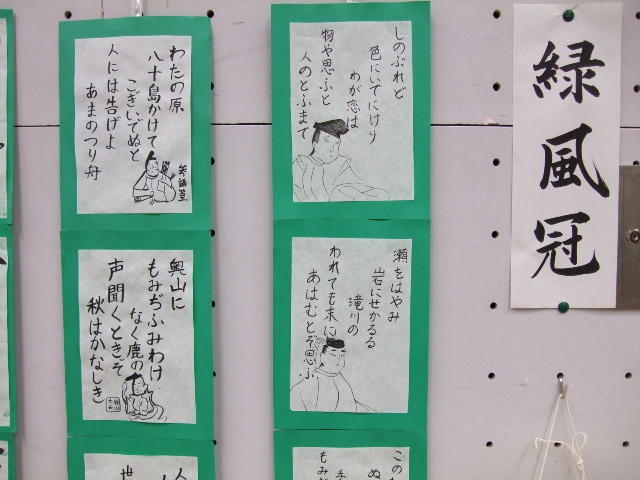 緑風冠
しのぶれど
色にいでにけり
わが恋は
物や思ふと
人のとふまで
瀬をはやみ
岩にせかるる
滝川の
われても末に
あはむとぞ思ふ
この
ぬ
手
もみ
わたの原
八十島かけて
こぎいでぬと
人には告げよ
あまのつり舟
参議篁
奥山に
もみぢふみわけ
なく鹿の
声聞くときぞ
秋はかなしき
人
世